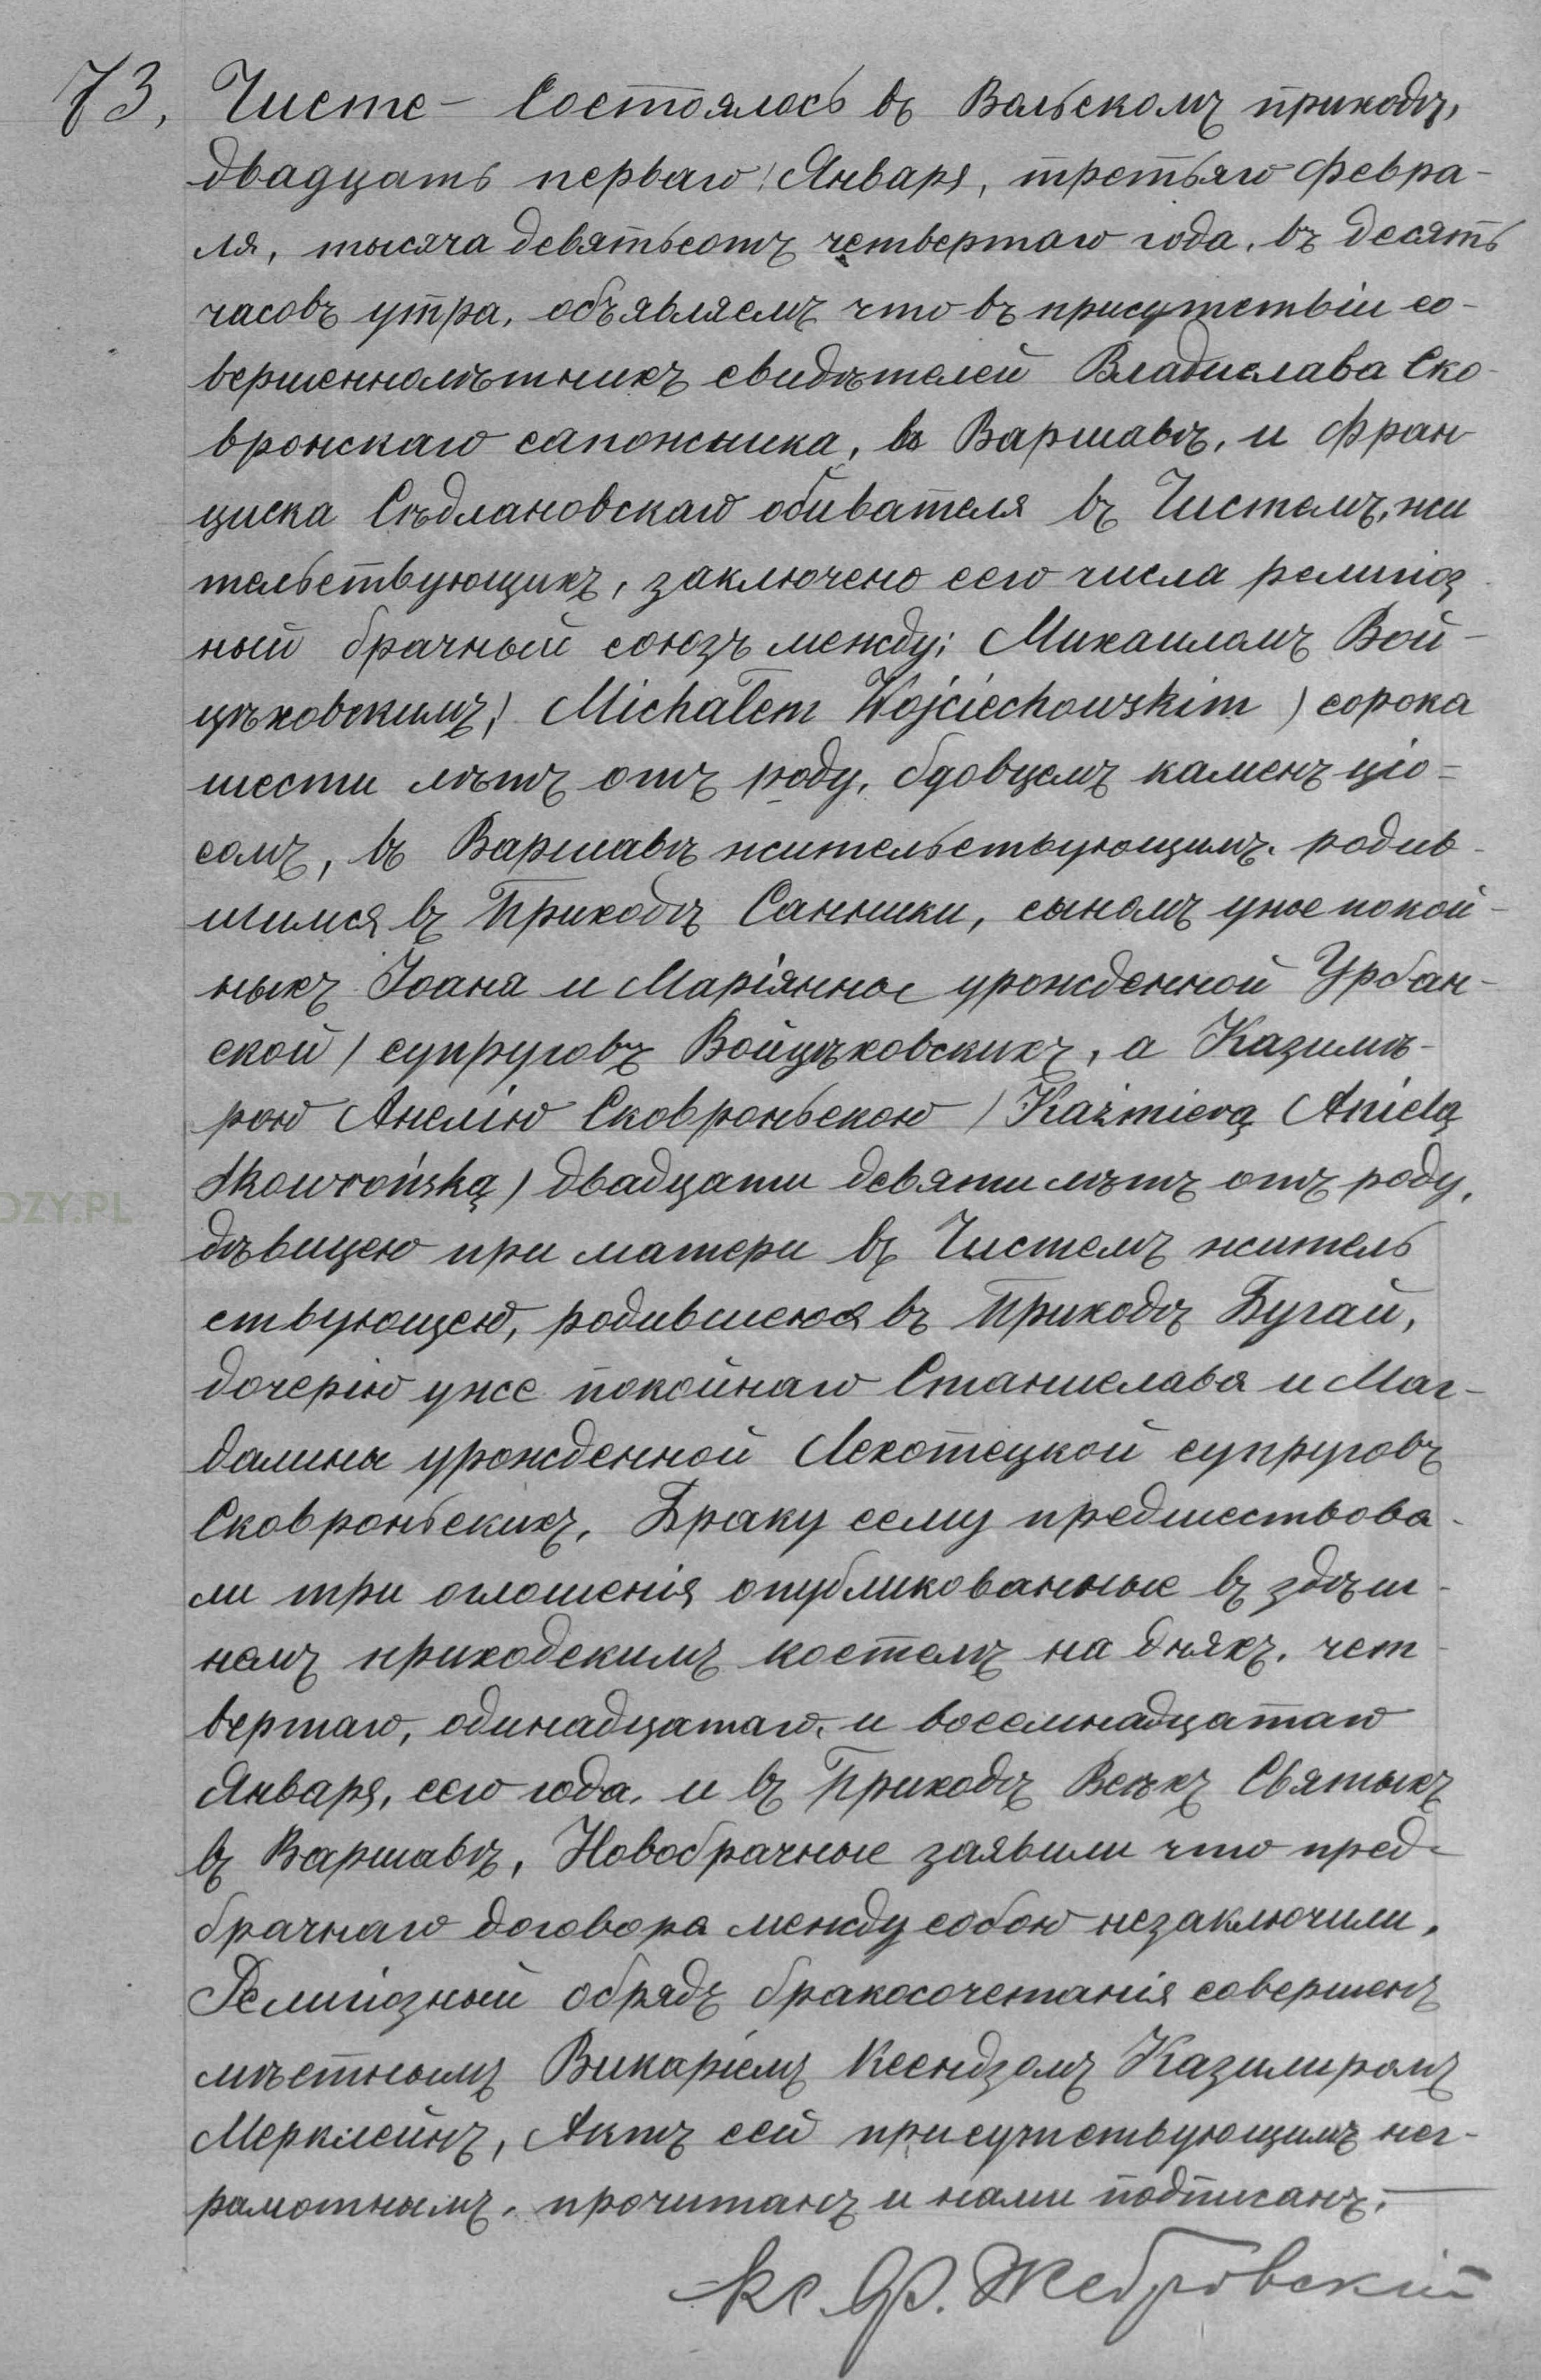 73. Чисте – Состоялось въ Вольскомъ приходѣ,
двадцать перваго / Января, третьяго Февра-
ля, тысяча девятьсотъ четвертаго года, въ десять
часовъ утра, объявляемъ что въ присутствіи со-
вершеннолѣтнихъ свидѣтелей Владислава Ско-
вронскаго сапожника, въ Варшавѣ, и Фран-
циска Сѣдлановскаго обивателя въ Чистемъ, жи
тельствующихъ, заключено сего числа религіоз-
ный брачный союзъ между: Михаиломъ Вой-
цѣховскимъ / Michałem Wojciechowskim ) сорока
шести лѣтъ отъ роду, вдовцемъ каменъціо=
сомъ, въ Варшавѣ жительствующимъ, родив-
шимся въ Приходѣ Санники, сыномъ уже покой-
ныхъ Іоана и Маріянны урожденной Урбан-
ской / супруговъ Войцѣховскихъ, а Казимѣ-
рою Анеліою Сковроньскою / Kaźmierą Anielą
Skowrońską ) двадцати девяти лѣтъ отъ роду,
дѣвицею при матери въ Чистемъ житель
ствующею, родившеюся въ Приходѣ Бугай,
дочерію уже покойнаго Станислава и Маг-
далины урожденной Лехотецкой супруговъ
Сковроньскихъ, Браку сему предшествова-
ли три оглошенія опубликованные въ здѣш-
номъ приходскимъ костелѣ на дняхъ, чет-
вертаго, одинадцатаго, и восемнадцатаго
Января, сего года, и въ Приходѣ Всѣхъ Святыхъ
въ Варшавѣ, Новобрачные заявили что пред-
брачнаго договора между собою незаключили,
Религіозный обрядъ бракосочетанія совершенъ
мѣстнымъ Викаріемъ Ксендзомъ Казимиромъ
Мерклейнъ, Актъ сей присутствующимъ нег-
рамотнымъ, прочитанъ и нами подписанъ.
Кс. Ф. Жебровскій
OZY.PL